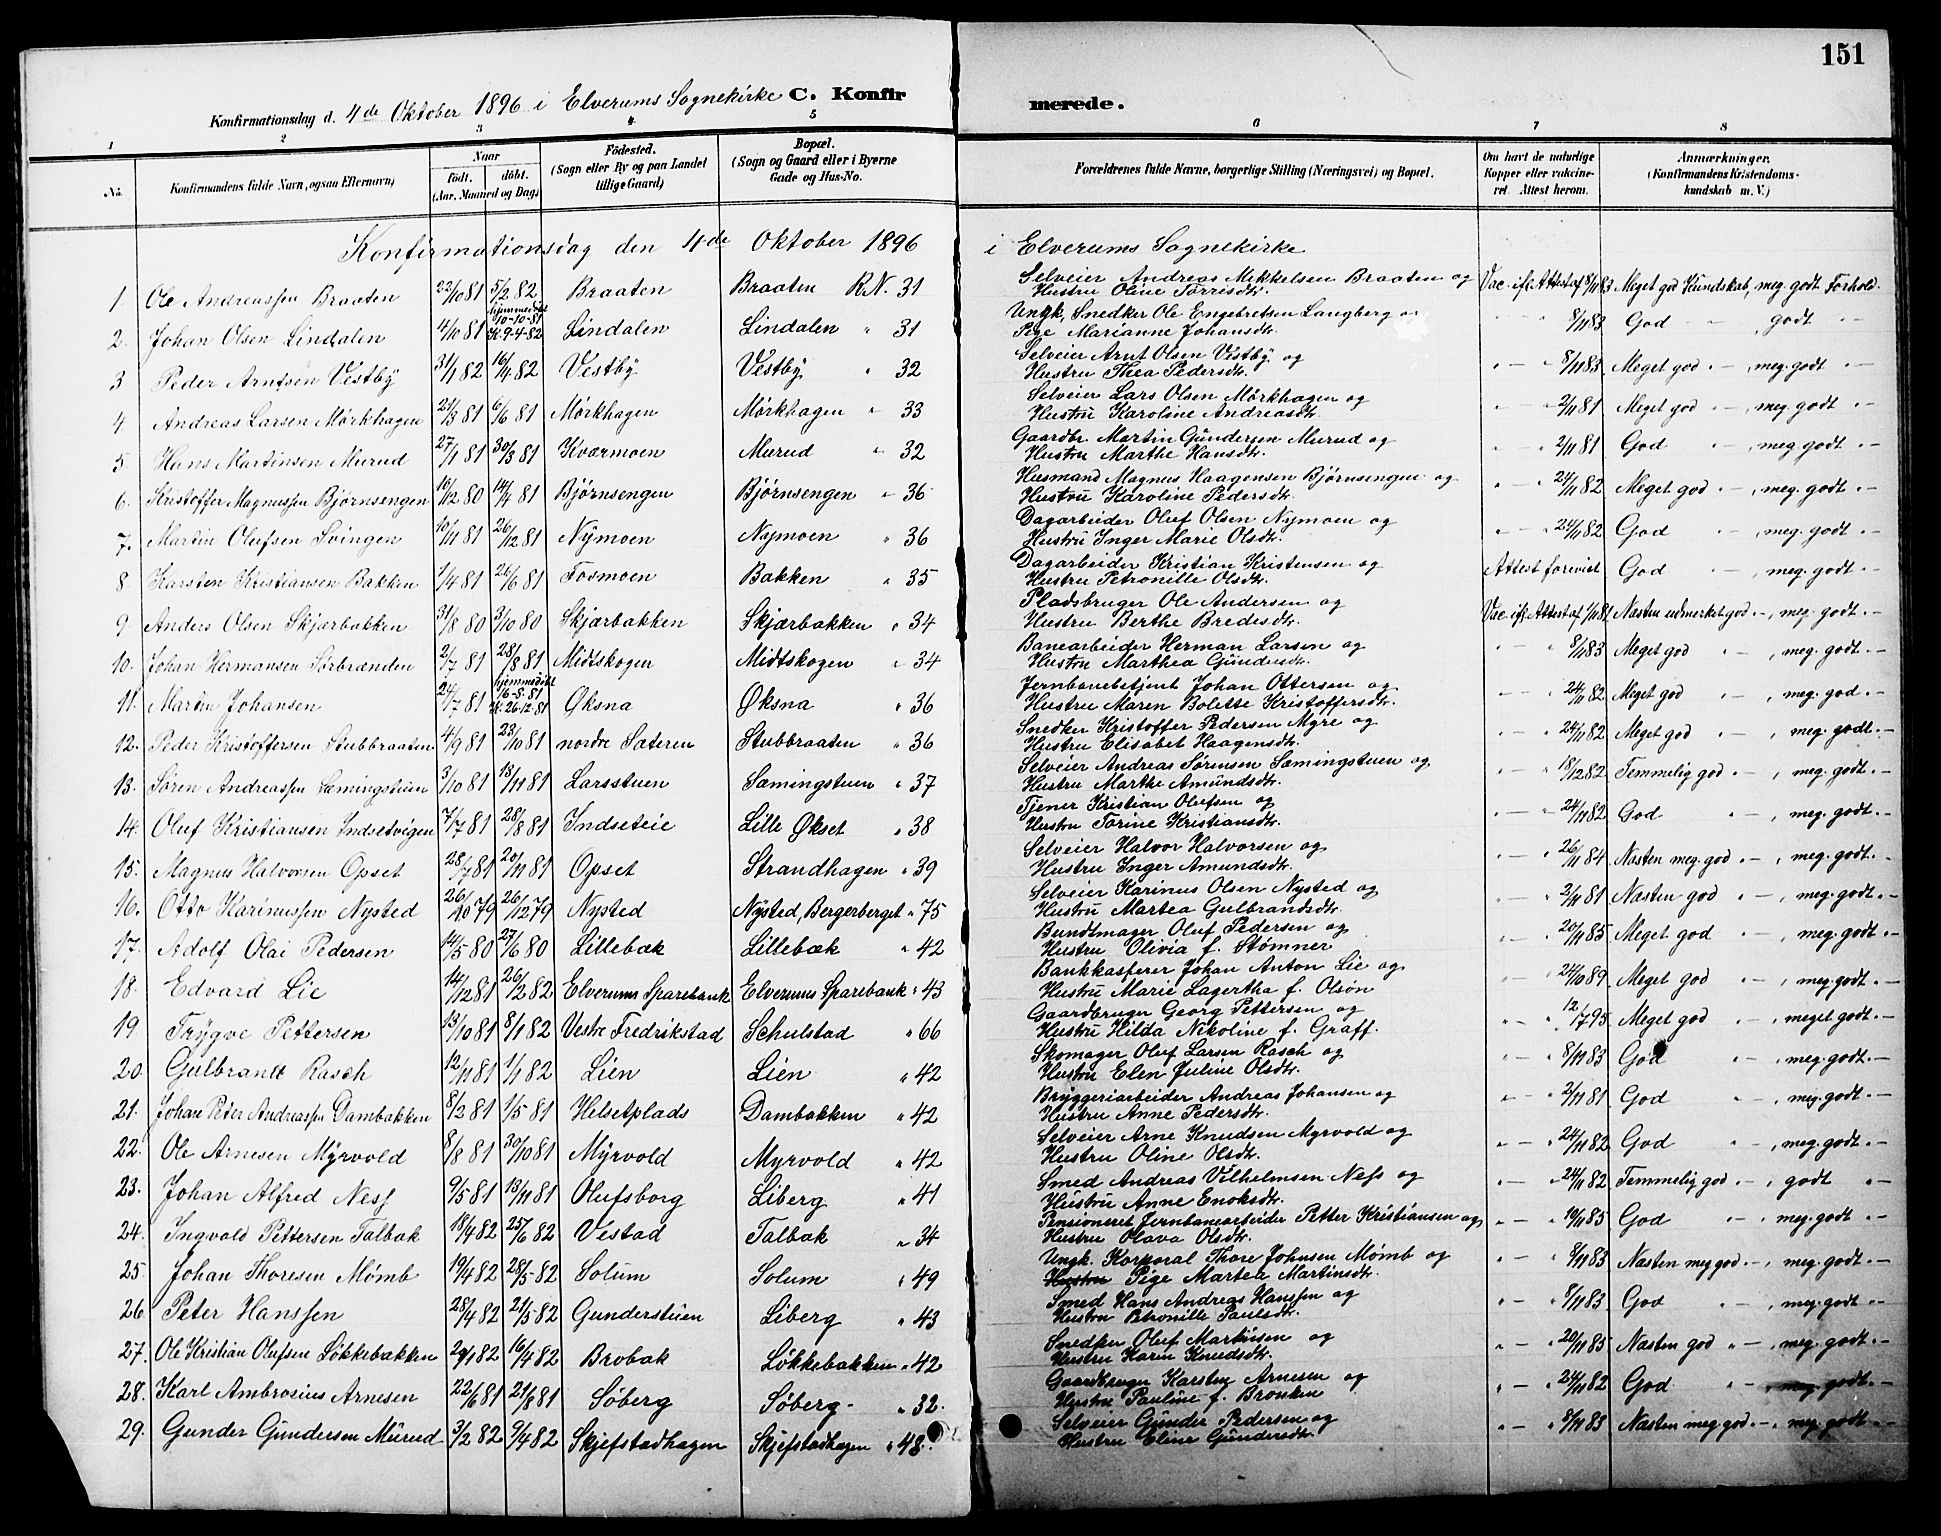 151
Konfirmationsdag d. 4de Oktober 1896 i Elverums Sognekirke C. Konfirmerede.
1 2 3 4 5 6 7 8
No. Konfirmandens fulde Navn, ogsaa Efternavn) Naar født. døbt. (Aar, Maaned og Dag) Fødested. (Sogn eller By og paa Landet tillige Gaard) Bopæl. (Sogn og Gaard eller i Byerne Gade og Hus-No. Forældrenes fulde Navne, borgerlige Stilling (Næringsvei) og Bopæl. Om havt de naturlige Kopper eller vakcineret. Attest herom. Anmærkninger. (Konfirmandens Kristendomskundskab m. V.)
Konfirmationsdag den 4de Oktober 1896 i Elverums Sognekirke
1 Ole Andreassen Braaten 22/10 81 5/2 82 Braaten Braaten R.N. 31 Selveier Andreas Mikkelsen Braaten og Hustru Oline Torrisdtr. Vac. ifl. Attest af 8/11 83 Meget god Kundskab, meg. godt Forhold.
2. Johan Olsen Lindalen 4/10 81 hjemmedøbt 10-10-81 K. 9-4-82 Lindalen Lindalen " 31 Ungk. Snedker Ole Engebretsen Langberg og Pige Marianne Johansdtr. " — " 8/11 83 God " — , godt " —
3 Peder Arntsen Vestby 31/1 82 16/4 82 Vestby Vestby " 32 Selveier Arnt Olsen Vestby og Hustru Thea Pedersdtr. " — " 8/11 83 Meget god " — , meg. godt " —
4 Andreas Larsen Mørkhagen 21/3 81 6/6 81 Mørkhagen Mørkhagen " 33 Selveier Lars Olsen Mørkhagen og Hustru Karoline Andreasdtr. " — " 2/11 81 Meget god " — , meg. godt " —
5. Hans Martinsen Murud 27/1 81 30/3 81 Kværmoen Murud " 32 Gaardbr. Martin Gundersen Murud og Hustru Marthe Hansdtr. " — " 2/11 81 God " — , meg. godt " —
6. Kristoffer Magnussen Bjørnsengen 16/12 80 14/4 81 Bjørnsengen Bjørnsengen " 36 Husmand Magnus Haagensen Bjørnsengen og Hustru Karoline Pedersdtr. " — " 24/11 82 Meget god " — , meg. godt " —
7. Martin Olufsen Svingen 10/11 81 26/12 81 Nymoen Nymoen " 36 Dagarbeider Oluf Olsen Nymoen og Hustru Inger Marie Olsdtr. " — " 24/11 82 God " — , meg. godt " —
8 Karsten Kristiansen Bakken 1/4 81 26/6 81 Fosmoen Bakken " 35 Dagarbeider Kristian Kristensen og Hustru Petronille Olsdtr. Attest forevist God " — , meg. godt " —
9 Anders Olsen Skjærbakken 31/8 80 3/10 80 Skjærbakken Skjærbakken " 34 Pladsbruger Ole Andersen og Hustru Berthe Bredesdtr. Vac. ifl. Attest af 1/11 81 Næsten udmerket god " — , meg. godt " —
10. Johan Hermansen Sørbranden 2/7 81 28/8 81 Midtskogen Midtskogen " 34 Banearbeider Herman Larsen og Hustru Marthea Gundersdtr. " — " 8/11 83 Meget god " — , meg. godt " —
11. Martin Johansen 24/7 81 hjemmedøbt 16-8-81 K. 26-12-81 Øksna Øksna " 36 Jernbanebetjent Johan Ottersen og Hustru Maren Bolette Kristoffersdtr. " — " 24/11 82 Meget god " — , meg. god " —
12. Peder Kristoffersen Stubbraaten 4/9 81 23/10 81 nordre Sæteren Stubbraaten " 36 Snedker Kristoffer Pedersen Myre og Hustru Elisabet Haagensdtr. " — " 24/11 82 Meget god " — , meg. godt " —
13. Søren Andreassen Sæmingstuen 3/10 81 13/11 81 Larsstuen Sæmingstuen " 37 Selveier Andreas Sørensen Sæmingstuen og Hustru Marthe Amundsdtr. " — " 18/12 82 Temmelig god " — , meg. godt " —
14. Oluf Kristiansen Indsetvigen 7/7 81 28/8 81 Indseteie Lille Økset " 38 Tjener Kristian Olufsen og Hustru Torine Kristiansdtr. " — " 24/11 82 God " — , meg. godt " —
15. Magnus Halvorsen Opset 28/7 81 20/11 81 Opset Strandhagen " 39 Selveier Halvor Halvorsen og Hustru Inger Amundsdtr. " — " 26/11 84 Næsten meg. god " — , meg. godt " —
16. Otto Karinussen Nysted 26/10 79 26/12 79 Nysted Nysted, Bergerberget " 75 Selveier Karinus Olsen Nysted og Hustru Martea Gulbrandsdtr. " — " 2/11 81 Næsten god " — , meg. godt " —
17. Adolf Olai Pedersen 14/5 80 27/6 80 Lillebæk Lillebæk " 42 Bundtmager Oluf Pedersen og Hustru Olivia f. Stømner " — " 20/11 85 Meget god " — , meg. godt " —
18. Edvard Lie 14/12 81 26/2 82 Elverums Sparebank Elverums Sparebank " 43 Bankkasserer Johan Anton Lie og Hustru Marie Lagertha f. Olsøn " — " 24/10 89 Meget god " — , meg. godt " —
19 Trygve Pettersen 13/10 81 8/1 82 Vestre Fredrikstad Schulstad " 66 Gaardbruger Georg Pettersen og Hustru Hilda Nikoline f. Graff. " — " 12/7 95 Meget god " — , meget godt " —
20. Gulbrandt Rasch 12/11 81 1/1 82 Lien Lien " 42 Skomager Oluf Larsen Rasch og Hustru Elen Juline Olsdtr. " — " 8/11 83 God " — , meg. godt " —
21. Johan Peter Andreassen Dambakken 8/2 81 1/5 81 Helsetplads Dambakken " 42 Bryggeriarbeider Andreas Johansen og Hustru Anne Pedersdtr. " — " 2/11 81 God " — , meg. godt " —
22. Ole Arnesen Myrvold 8/8 81 30/10 81 Myrvold Myrvold " 42 Selveier Arne Knudsen Myrvold og Hustru Oline Olsdtr. " — " 24/11 82 God " — , meg. godt " —
23. Johan Alfred Ness 9/5 81 13/11 81 Olufsborg Liberg " 41 Smed Andreas Vilhelmsen Ness og Hustru Anne Enoksdtr. " — " 24/11 82 Temmelig god " — , godt " —
24. Ingvold Pettersen Talbak 18/4 82 25/6 82 Vestad Talbak " 34 Pensioneret Jernbanearbeider Petter Kristiansen og Hustru Olava Olsdtr. " — " 19/11 85 God " — , meg. godt " —
25. Johan Thoresen Mømb 19/4 82 28/5 82 Solum Solum " 49 Ungk. Korporal Thore Johnsen Mømb og Hustru Pige Martele Martinsdtr. " — " 8/11 83 Næsten meg god " — , meg. godt " —
26. Peter Hanssen 28/4 82 21/5 82 Gunderstuen Liberg " 43 Smed Hans Andreas Hanssen og Hustru Petronille Paulsdtr. " — " 8/11 83 God " — , meg. godt " —
27. Ole Kristian Olufsen Løkkebakken 29/1 82 16/4 82 Brobak Løkkebakken " 42 Snedker Oluf Martinsen og Hustru Karen Knudsdtr. " — " 20/11 85 Næsten god " — , meg. godt " —
28. Karl Ambrosius Arnesen 22/6 81 21/8 81 Søberg Søberg " 32. Gaardbruger Karsten Arnesen og Hustru Pauline f. Bronken " — " 24/11 82 God " — , meg. godt " —
29. Gunder Gundersen Murud 3/2 82 9/4 82 Skjefstadhagen Skjefstadhagen " 48. Selveier Gunder Pedersen og Hustru Eline Gundersdtr. " — " 8/11 83 Næsten meg god " — , meg. godt " —